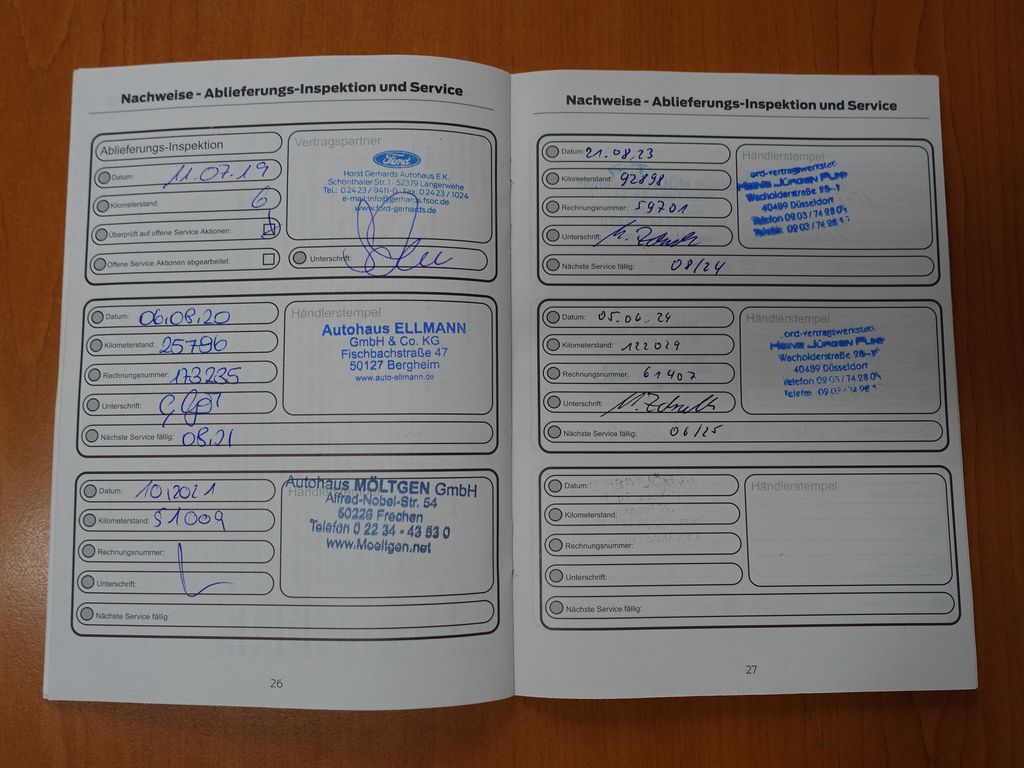 Nachweise - Ablieferungs-Inspektion und Service
Ablieferungs-Inspektion
Datum: 11.07.19
Kilometerstand: 6
Überprüft auf offene Service Aktionen:
Offene Service Aktionen abgearbeitet:
Vertragspartner
Ford
Horst Gerhards Autohaus E.K.
Schönthaler Str. 1 - 52379 Langerwehe
Tel.: 0 24 23 / 9411-0 - Fax: 0 24 23 / 1024
e-mail:info@gerhards.fsoc.de
www.ford-gerhards.de
Unterschrift:
Datum: 06.08.20
Kilometerstand: 25796
Rechnungsnummer: 173235
Unterschrift:
Nächste Service fällig: 08.21
Händlerstempel
Autohaus ELLMANN
GmbH & Co. KG
Fischbachstraße 47
50127 Bergheim
www.auto-ellmann.de
Datum: 10.2021
Kilometerstand: 51009
Rechnungsnummer:
Unterschrift:
Nächste Service fällig:
Autohaus MÖLTGEN GmbH
Alfred-Nobel-Str. 54
50226 Frechen
Telefon 0 22 34 - 43 53 0
www.Moeltgen.net
26
Nachweise - Ablieferungs-Inspektion und Service
Datum: 21.08.23
Kilometerstand: 92898
Rechnungsnummer: 59701
Unterschrift:
Nächste Service fällig: 08/24
Händlerstempel
ord-Vertragswerkstatt
Heinz Jürgen
Wacholderstraße
40489 Düsseldorf
Telefon 02 03 / 74 28 0
Telefax 02 03 / 74 28 1
Datum: 05.06.24
Kilometerstand: 122029
Rechnungsnummer: 61407
Unterschrift:
Nächste Service fällig: 06/25
Händlerstempel
ord-Vertragswerkstatt
Heinz Jürgen
Wacholderstraße
40489 Düsseldorf
Telefon 02 03 / 74 28 0
Datum:
Kilometerstand:
Rechnungsnummer:
Unterschrift:
Nächste Service fällig:
Händlerstempel
27